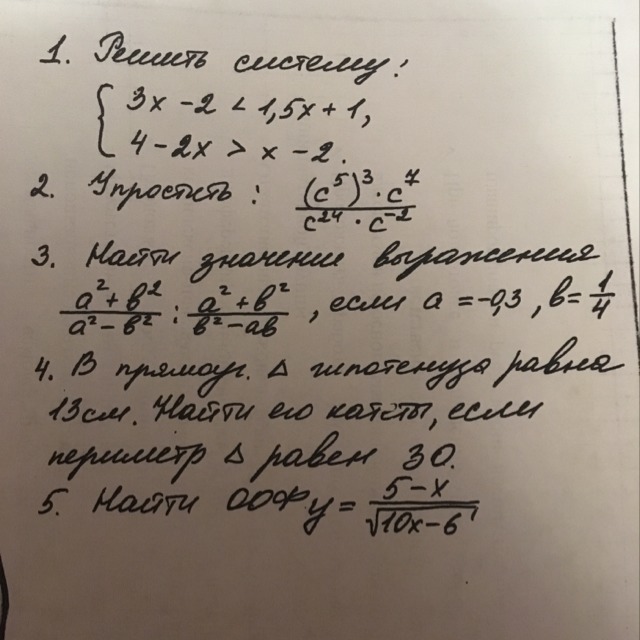 1. Решить систему:
{ 3x - 2 < 1,5x + 1,
4 - 2x > x - 2.
2. Упростить: (c⁵)³ · c⁷ / c²⁴ · c⁻²
3. Найти значение выражения
a² + b² / a² - b² : a² + b² / b² - ab , если a = -0,3, b = 1/4
4. В прямоуг. Δ гипотенуза равна
13 см. Найти его катеты, если
периметр Δ равен 30.
5. Найти ООФ y = 5 - x / √10x - 6